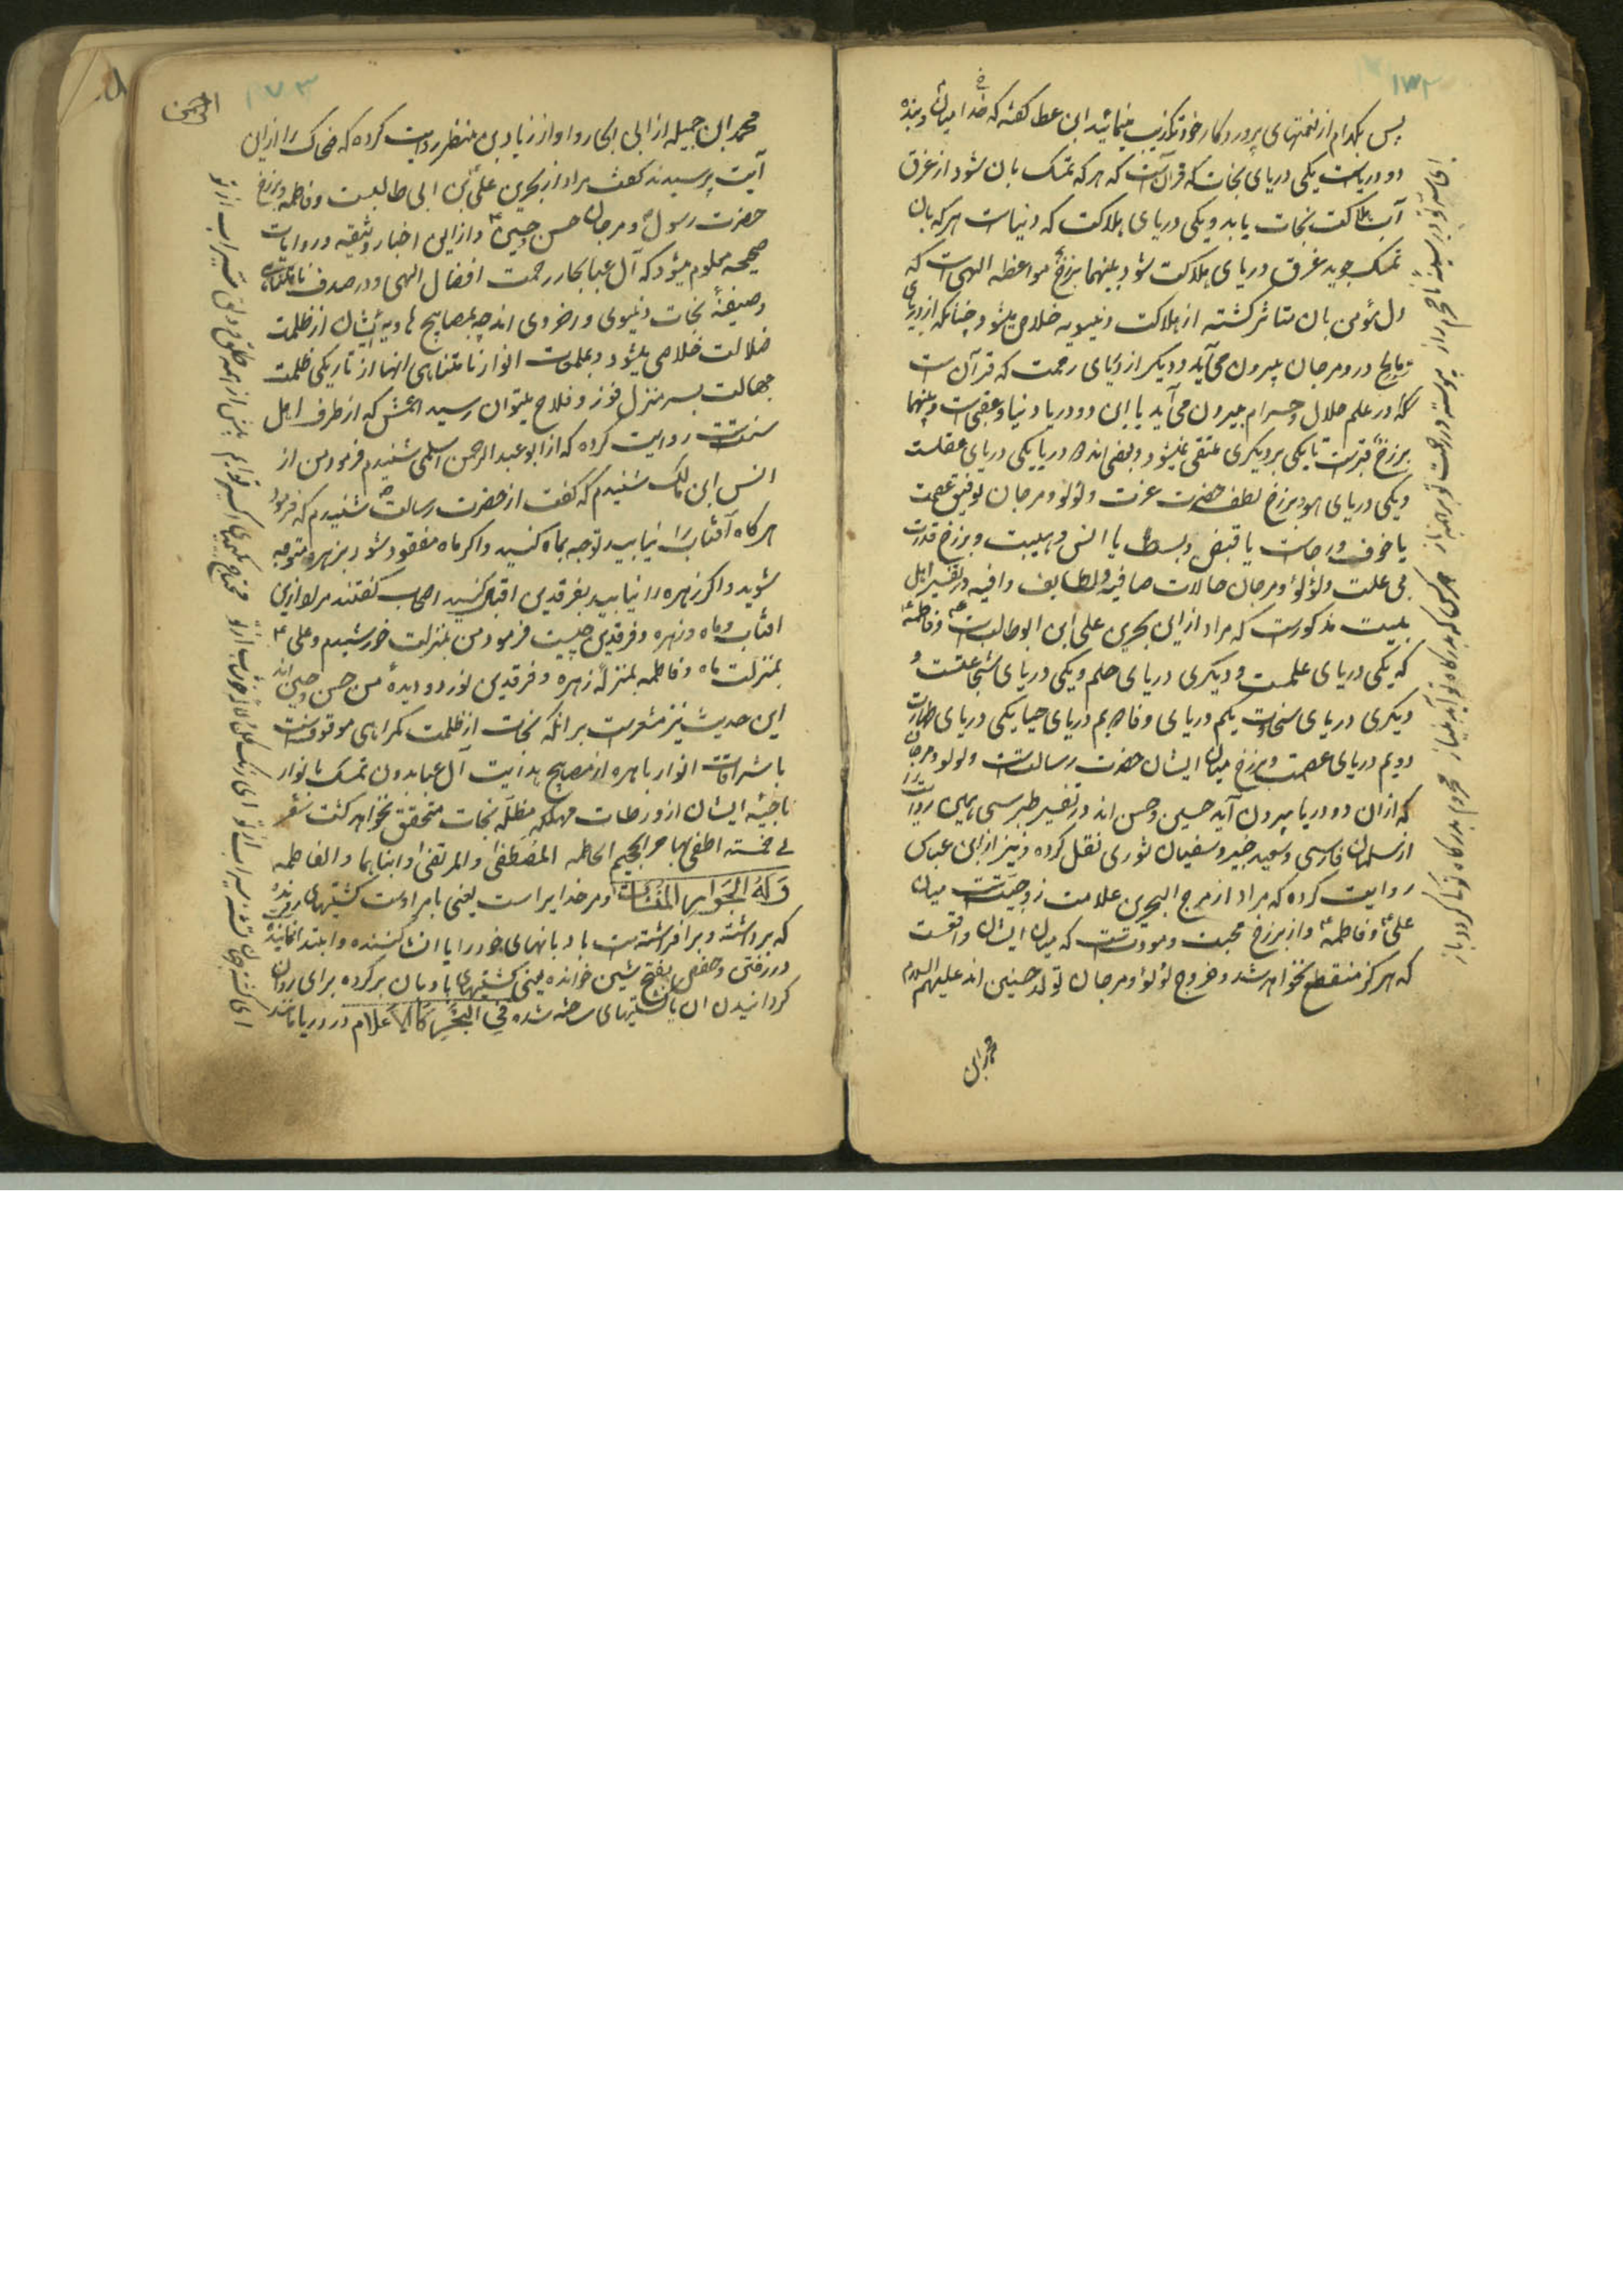 ۱۷۲
پس بکدام از نعمتهای پروردکار خود تکذیب مینمائید ابن عطا کفته که خدا میان و بنده
دو دریاست یکی دریای نجات که قرآنست که هر که تمسک بان شود از غرق
آب هلاکت نجات یابد و یکی دریای هلاکت که دنیاست هر که بان
تمسک جوید غرق دریای هلاکت شود بینهما برزخ مواعظه الهی است که
دل مؤمن بان متاثر کشته از هلاکت دنیویه خلاص میشود چنانکه از دریای
در و مرجان بیرون می آید و دیکر از دریای رحمت که قرآن است
در علم حلال و حرام بیرون می آید یا این دو دریا دنیا و عقبی است و بینهما
برزخ قبرست تا یکی بر دیکری نمیشود و بعضی اند دریا یکی دریای عقلست
و یکی دریای هوا و برزخ لطف حضرت عزت و لؤلؤ و مرجان توفیق عصمت
یا خوف و رجاست یا قبض و بسط یا انس و هیبت و برزخ قدرت
بی علت و لؤلؤ و مرجان حالات صافیه و لطایف وافیه در تفسیر اهل
بیت مذکورست که مراد ازین بحرین علی ابن ابوطالبست ع و فاطمه ع
که یکی دریای علمست و دیکری دریای حلم و یکی دریای شجاعتست و
دیکری دریای سخاوت یکم دریای وفا دویم دریای حیا یکی دریای طهارت
دویم دریای عصمت و برزخ میان ایشان حضرت رسالتست و لولو و مرجان
که از ان دو دریا بیرون آید حسین و حسن اند در تفسیر طبرسی همین روایت را
از سلمان فارسی و سعید جبیر و سفیان ثوری نقل کرده و نیز از ابن عباس
روایت کرده که مراد از مرج البحرین علامت زوجیتست میان
علی ع و فاطمه ع و از برزخ محبت و مودتست که میان ایشان واقعست
که هرکز منقطع نخواهد شد و خروج لؤلؤ و مرجان تولد حسنین اند علیهم السلام
محمد ابن
هر کس که بدرکاه تو آید بنیاز محروم بدرکاه تو کی کردد باز
۱۷۳
الرحمن
محمد ابن جبیله از ابی الجارود او از زیاد بن منظر روایت کرده که ضحاک را از این
آیت پرسیدند کفت مراد از بحرین علی بن ابی طالبست و فاطمه و برزخ
حضرت رسول ص و مرجان حسن و حسین ع و از این اخبار وثیقه و روایات
صحیحه معلوم میشود که آل عبا بحار رحمت افضال الهی و در صدف نامتناهی
و سفینهٔ نجات دنیوی و اخروی اند چه بمصابیح هادیهٔ ایشان از ظلمت
ضلالت خلاصی میشود و بعلمات انوار نامتناهی انها از تاریکی ظلمت
جهالت بسرمنزل فوز و فلاح میتوان رسید اعمش که از طرف اهل
سنتست روایت کرده که از ابو عبد الرحمن اسلمی شنیدم فرمود من از
انس ابن مالک شنیدم که کفت از حضرت رسالت ص شنیدم که فرمود
هر کاه آفتاب را نیابید توجه بماه کنید و اکر ماه مفقود شود بزهره متوجه
شوید و اکر زهره را نیابید بفرقدین اقتباس کنید اصحاب کفتند مراد ازین
افتاب و ماه و زهره و فرقدین چیست فرمود من بمنزلت خورشیدم و علی ع
بمنزلت ماه و فاطمه بمنزلهٔ زهره و فرقدین نور دو دیدهٔ من حسن و حسین اند
این حدیث نیز مشعرست بر انکه نجات از ظلمت کمراهی موقوفست
باشراقات انوار باهره از مصابیح هدایت آل عبا بدون تمسک بانوار
ناجیهٔ ایشان از ورطات مهلکه مظله نجات متحقق نخواهد کشت شعر
لی خمسة اطفی بها حر الجحیم الحاطمه المصطفی والمرتضی و ابناهما و الفاطمه
وَلَهُ الجَوَارِ المُنْشَآتُ و مر خدایراست یعنی بامر اوست کشتیهای رونده
که برداشته و برافراشته است بادبانهای خود را یا انشا کننده و ابتدا نماینده
در رفتن و حفص بفتح شین خوانده یعنی کشتیهای بادبان برکرده برای روان
کردانیدن ان یا کشتیهای ساخته شده فِی البَحْرِ کَالاَعْلَامِ در دریا مانند